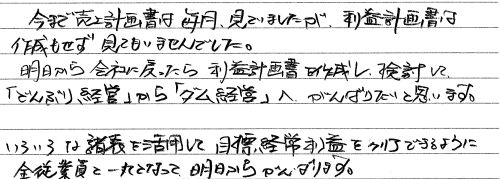 今まで売上計画書は毎月、見ていましたが、利益計画書は
作成もせず見てもいませんでした。
明日から会社に戻ったら利益計画書を作成し、検討して、
「どんぶり経営」から「ダム経営」へ、がんばりたいと思います。
いろいろな諸表を活用して目標経常利益をクリアできるように
全従業員と一丸となって明日からがんばります。